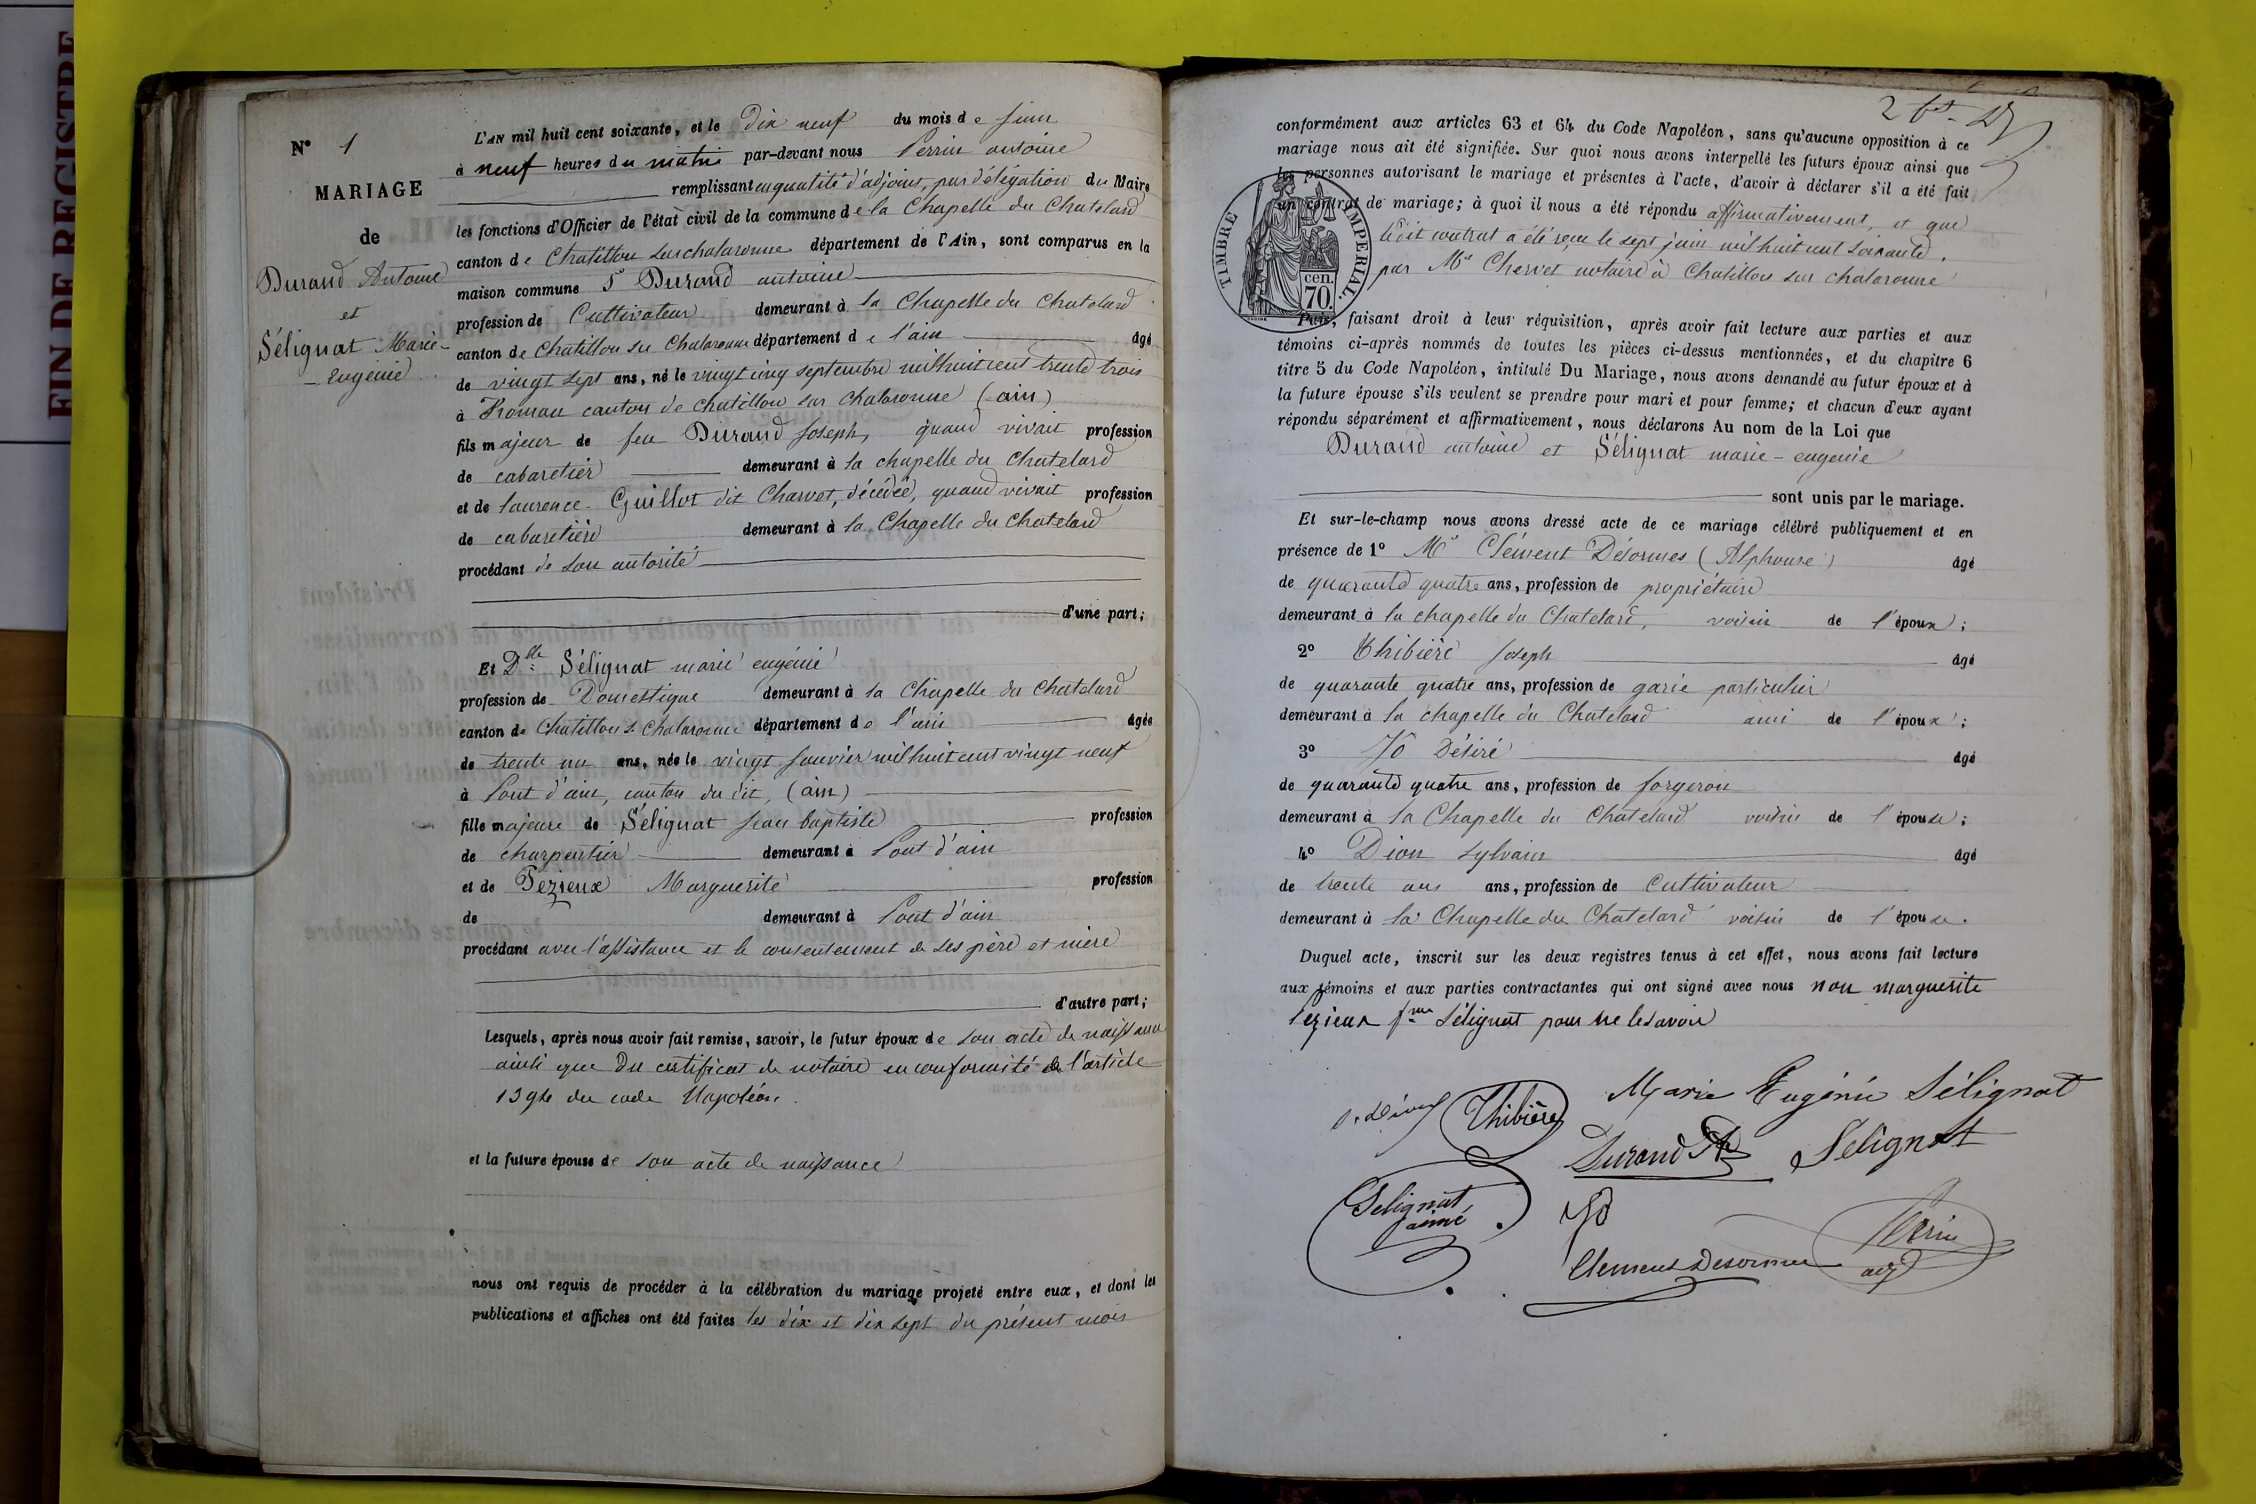 FIN DE REGISTRE
N° 1
MARIAGE
de
Durand Antoine
et
Sélignat Marie-
Eugénie
L'AN mil huit cent soixante, et le Dix neuf du mois de Juin
à neuf heures du matin par-devant nous Perrin antoine
remplissant en qualité d'adjoint, par délégation du Maire
les fonctions d'Officier de l'état civil de la commune de la Chapelle du Chatelard
canton de Chatillon sur chalaronne département de l'Ain, sont comparus en la
maison commune Sr Durand antoine
profession de Cultivateur demeurant à la Chapelle du Chatelard
canton de Chatillon sur Chalaronne département de l'ain âgé
de vingt sept ans, né le vingt cinq septembre mil huit cent trente trois
à Romans canton de chatillon sur chalaronne (ain)
fils majeur de feu Durand Joseph, quand vivait profession
de cabaretier demeurant à la chapelle du Chatelard
et de laurence Guillot dit Charvet, décédée, quand vivait profession
de cabaretière demeurant à la Chapelle du Chatelard
procédant de son autorité
d'une part;
Et Dlle Sélignat marie eugénie
profession de Domestique demeurant à la Chapelle du Chatelard
canton de Chatillon s. Chalaronne département de l'ain âgée
de trente un ans, née le vingt Janvier mil huit cent vingt neuf
à Pont d'ain, canton du dit, (ain)
fille majeure de Sélignat Jean baptiste profession
de charpentier demeurant à Pont d'ain
et de Pezieux Marguerite profession
de demeurant à Pont d'ain
procédant avec l'assistance et le consentement de ses père et mère
d'autre part;
Lesquels, après nous avoir fait remise, savoir, le futur époux de son acte de naissance
ainsi que du certificat de notaire en conformité de l'article
1394 du code Napoléon.
et la future épouse de son acte de naissance
nous ont requis de procéder à la célébration du mariage projeté entre eux, et dont les
publications et affiches ont été faites les dix et dix sept du présent mois
conformément aux articles 63 et 64 du Code Napoléon, sans qu'aucune opposition à ce
mariage nous ait été signifiée. Sur quoi nous avons interpellé les futurs époux ainsi que
les personnes autorisant le mariage et présentes à l'acte, d'avoir à déclarer s'il a été fait
un contrat de mariage; à quoi il nous a été répondu affirmativement, et que
le dit contrat a été reçu le sept juin mil huit cent soixante,
par Me Chervet notaire à Chatillon sur chalaronne
TIMBRE IMPERIAL.
cen.
70.
Puis, faisant droit à leur réquisition, après avoir fait lecture aux parties et aux
témoins ci-après nommés de toutes les pièces ci-dessus mentionnées, et du chapitre 6
titre 5 du Code Napoléon, intitulé Du Mariage, nous avons demandé au futur époux et à
la future épouse s'ils veulent se prendre pour mari et pour femme; et chacun d'eux ayant
répondu séparément et affirmativement, nous déclarons Au nom de la Loi que
Durand antoine et Sélignat marie-eugenie
sont unis par le mariage.
Et sur-le-champ nous avons dressé acte de ce mariage célébré publiquement et en
présence de 1° Mr Clément Désormes (Alphonse) âgé
de quarante quatre ans, profession de propriétaire
demeurant à la chapelle du Chatelard, voisin de l'époux;
2° Thibière Joseph âgé
de quarante quatre ans, profession de garde particulier
demeurant à la chapelle du Chatelard ami de l'époux;
3° Jô Désiré âgé
de quarante quatre ans, profession de forgeron
demeurant à la Chapelle du Chatelard voisin de l'épouse;
4° Dion Sylvain âgé
de trente ans ans, profession de Cultivateur
demeurant à la Chapelle du Chatelard voisin de l'épouse.
Duquel acte, inscrit sur les deux registres tenus à cet effet, nous avons fait lecture
aux témoins et aux parties contractantes qui ont signé avec nous non marguerite
Pezieux fme Sélignat pour ne le savoir
Marie Eugénie Sélignat
Thibière
Durand Sélignat
Sélignat
aimé
Jô
Clement Desormes
Perrin
adj